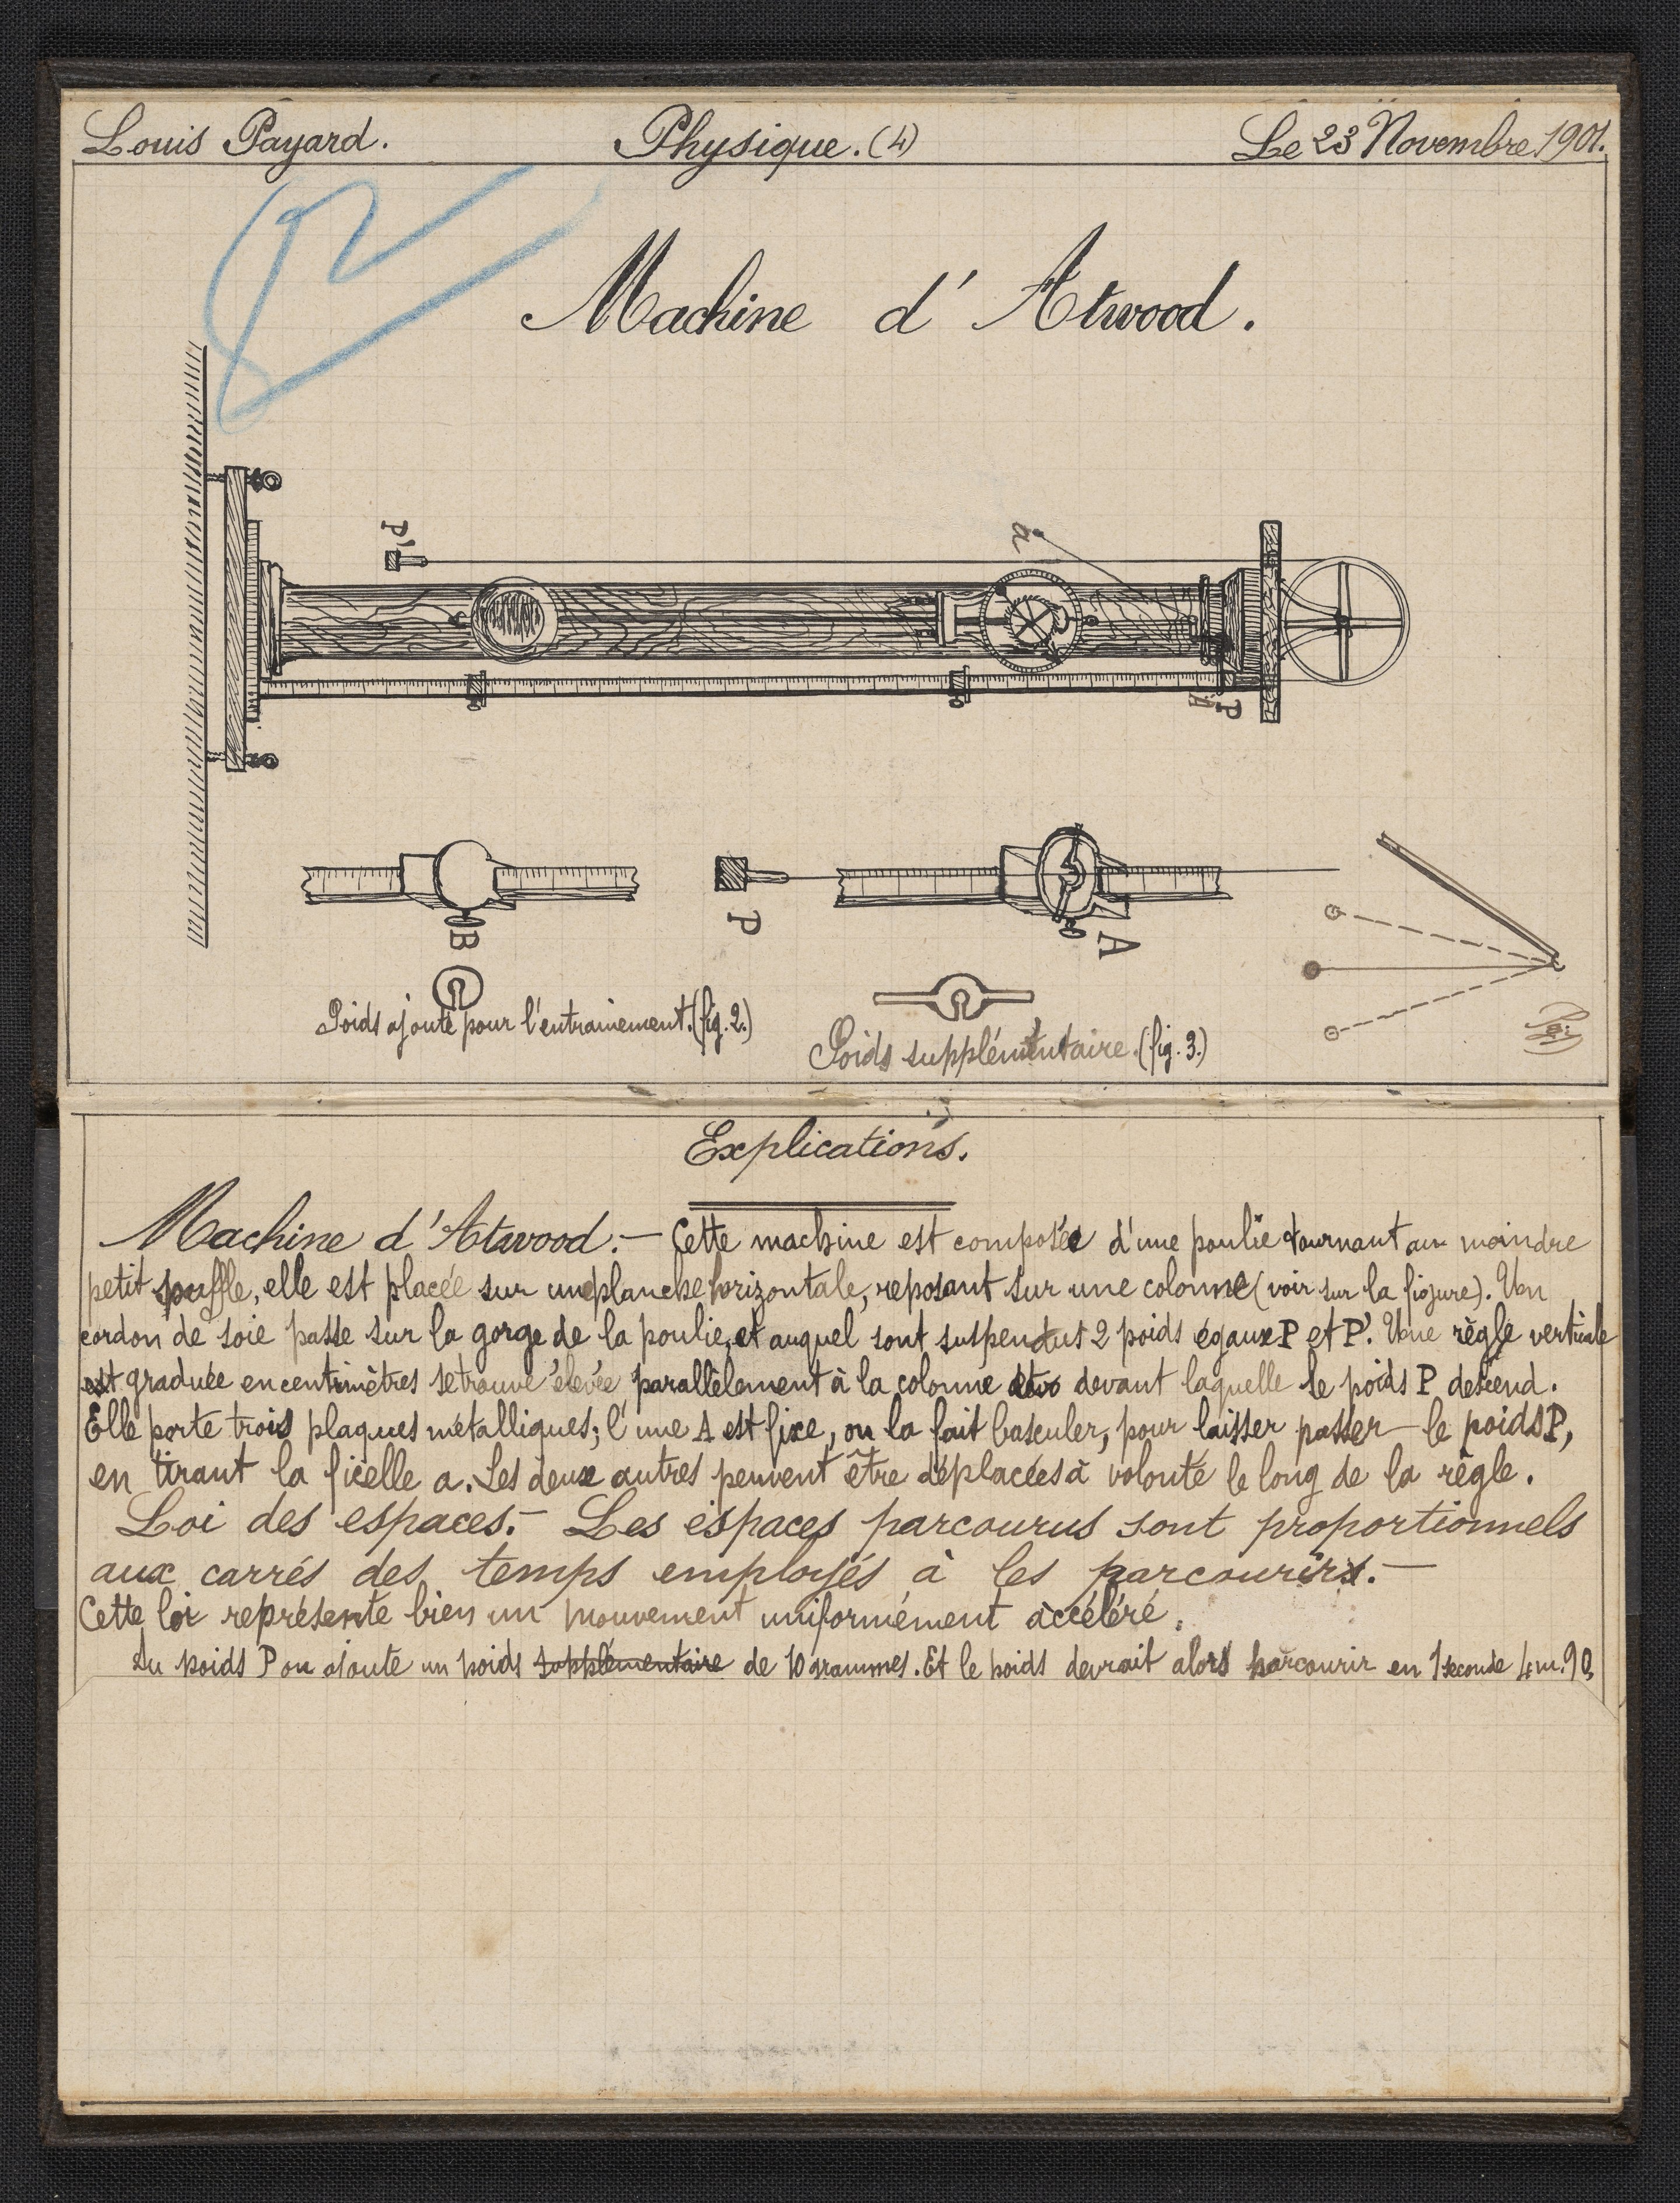 Louis Payard. Physique. (4) Le 23 Novembre 1901.
Machine d'Atwood.
P'
a
P
B
P
A
Poids ajouté pour l'entrainement. (fig. 2.)
Poids supplémentaire. (fig. 3.)
Explications.
Machine d'Atwood. — Cette machine est composée d'une poulie tournant au moindre
petit souffle, elle est placée sur une planche horizontale, reposant sur une colonne (voir sur la figure). Un
cordon de soie passe sur la gorge de la poulie, et auquel sont suspendus 2 poids égaux P et P'. Une règle verticale
est graduée en centimètres se trouve élevée parallèlement à la colonne devant laquelle le poids P descend.
Elle porte trois plaques métalliques; l'une A est fixe, on la fait basculer, pour laisser passer le poids P,
en tirant la ficelle a. Les deux autres peuvent être déplacées à volonté le long de la règle.
Loi des espaces. — Les espaces parcourus sont proportionnels
aux carrés des temps employés à les parcourirs. —
Cette loi représente bien un mouvement uniformément accéléré.
Au poids P on ajoute un poids supplémentaire de 10 grammes. Et le poids devrait alors parcourir en 1 seconde 4m.90,